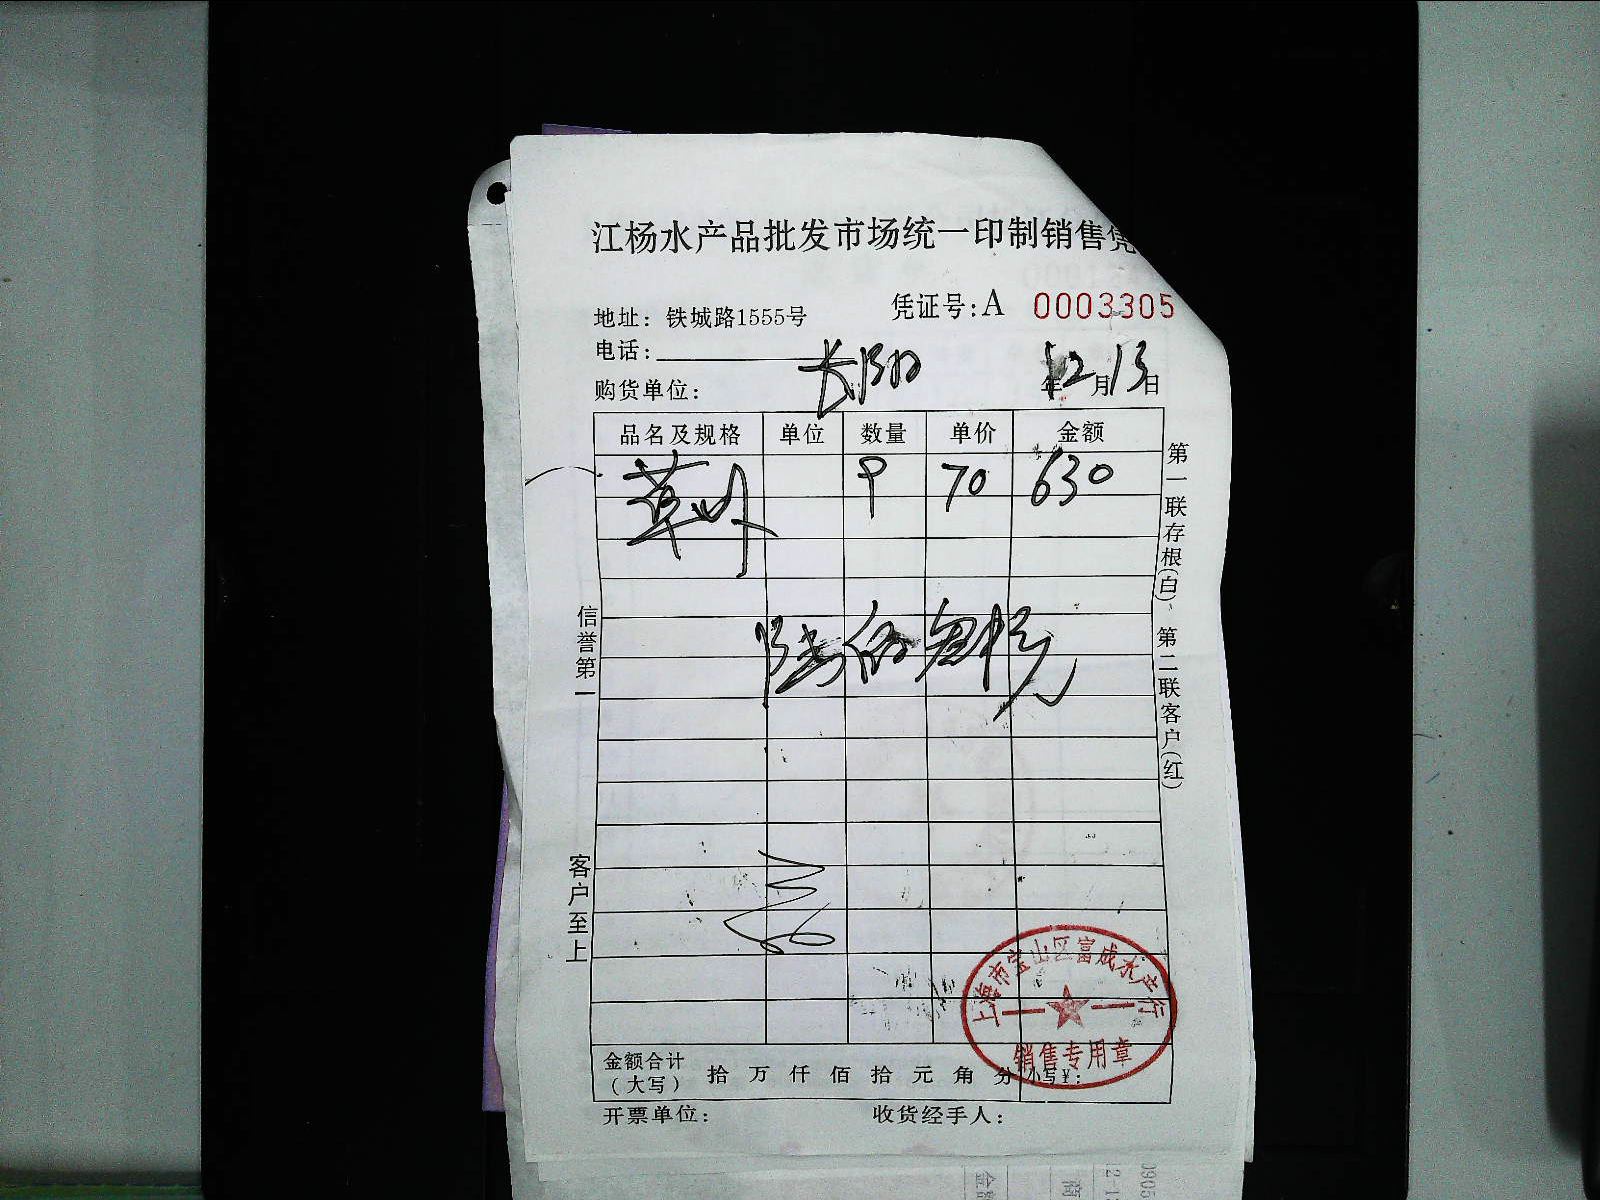 江杨水产品批发市场统一印制销售凭
凭证号:A 0003305
地址: 铁城路1555号
电话:
购货单位: 长阳
年12月13日
品名及规格 单位 数量 单价 金额
草虾 9 70 630
陆佰叁拾元
第一联存根(白)、第二联客户(红)
信誉第一
客户至上
上海市宝山区富成水产行
销售专用章
金额合计(大写) 拾 万 仟 佰 拾 元 角 分 小写¥:
开票单位: 收货经手人: